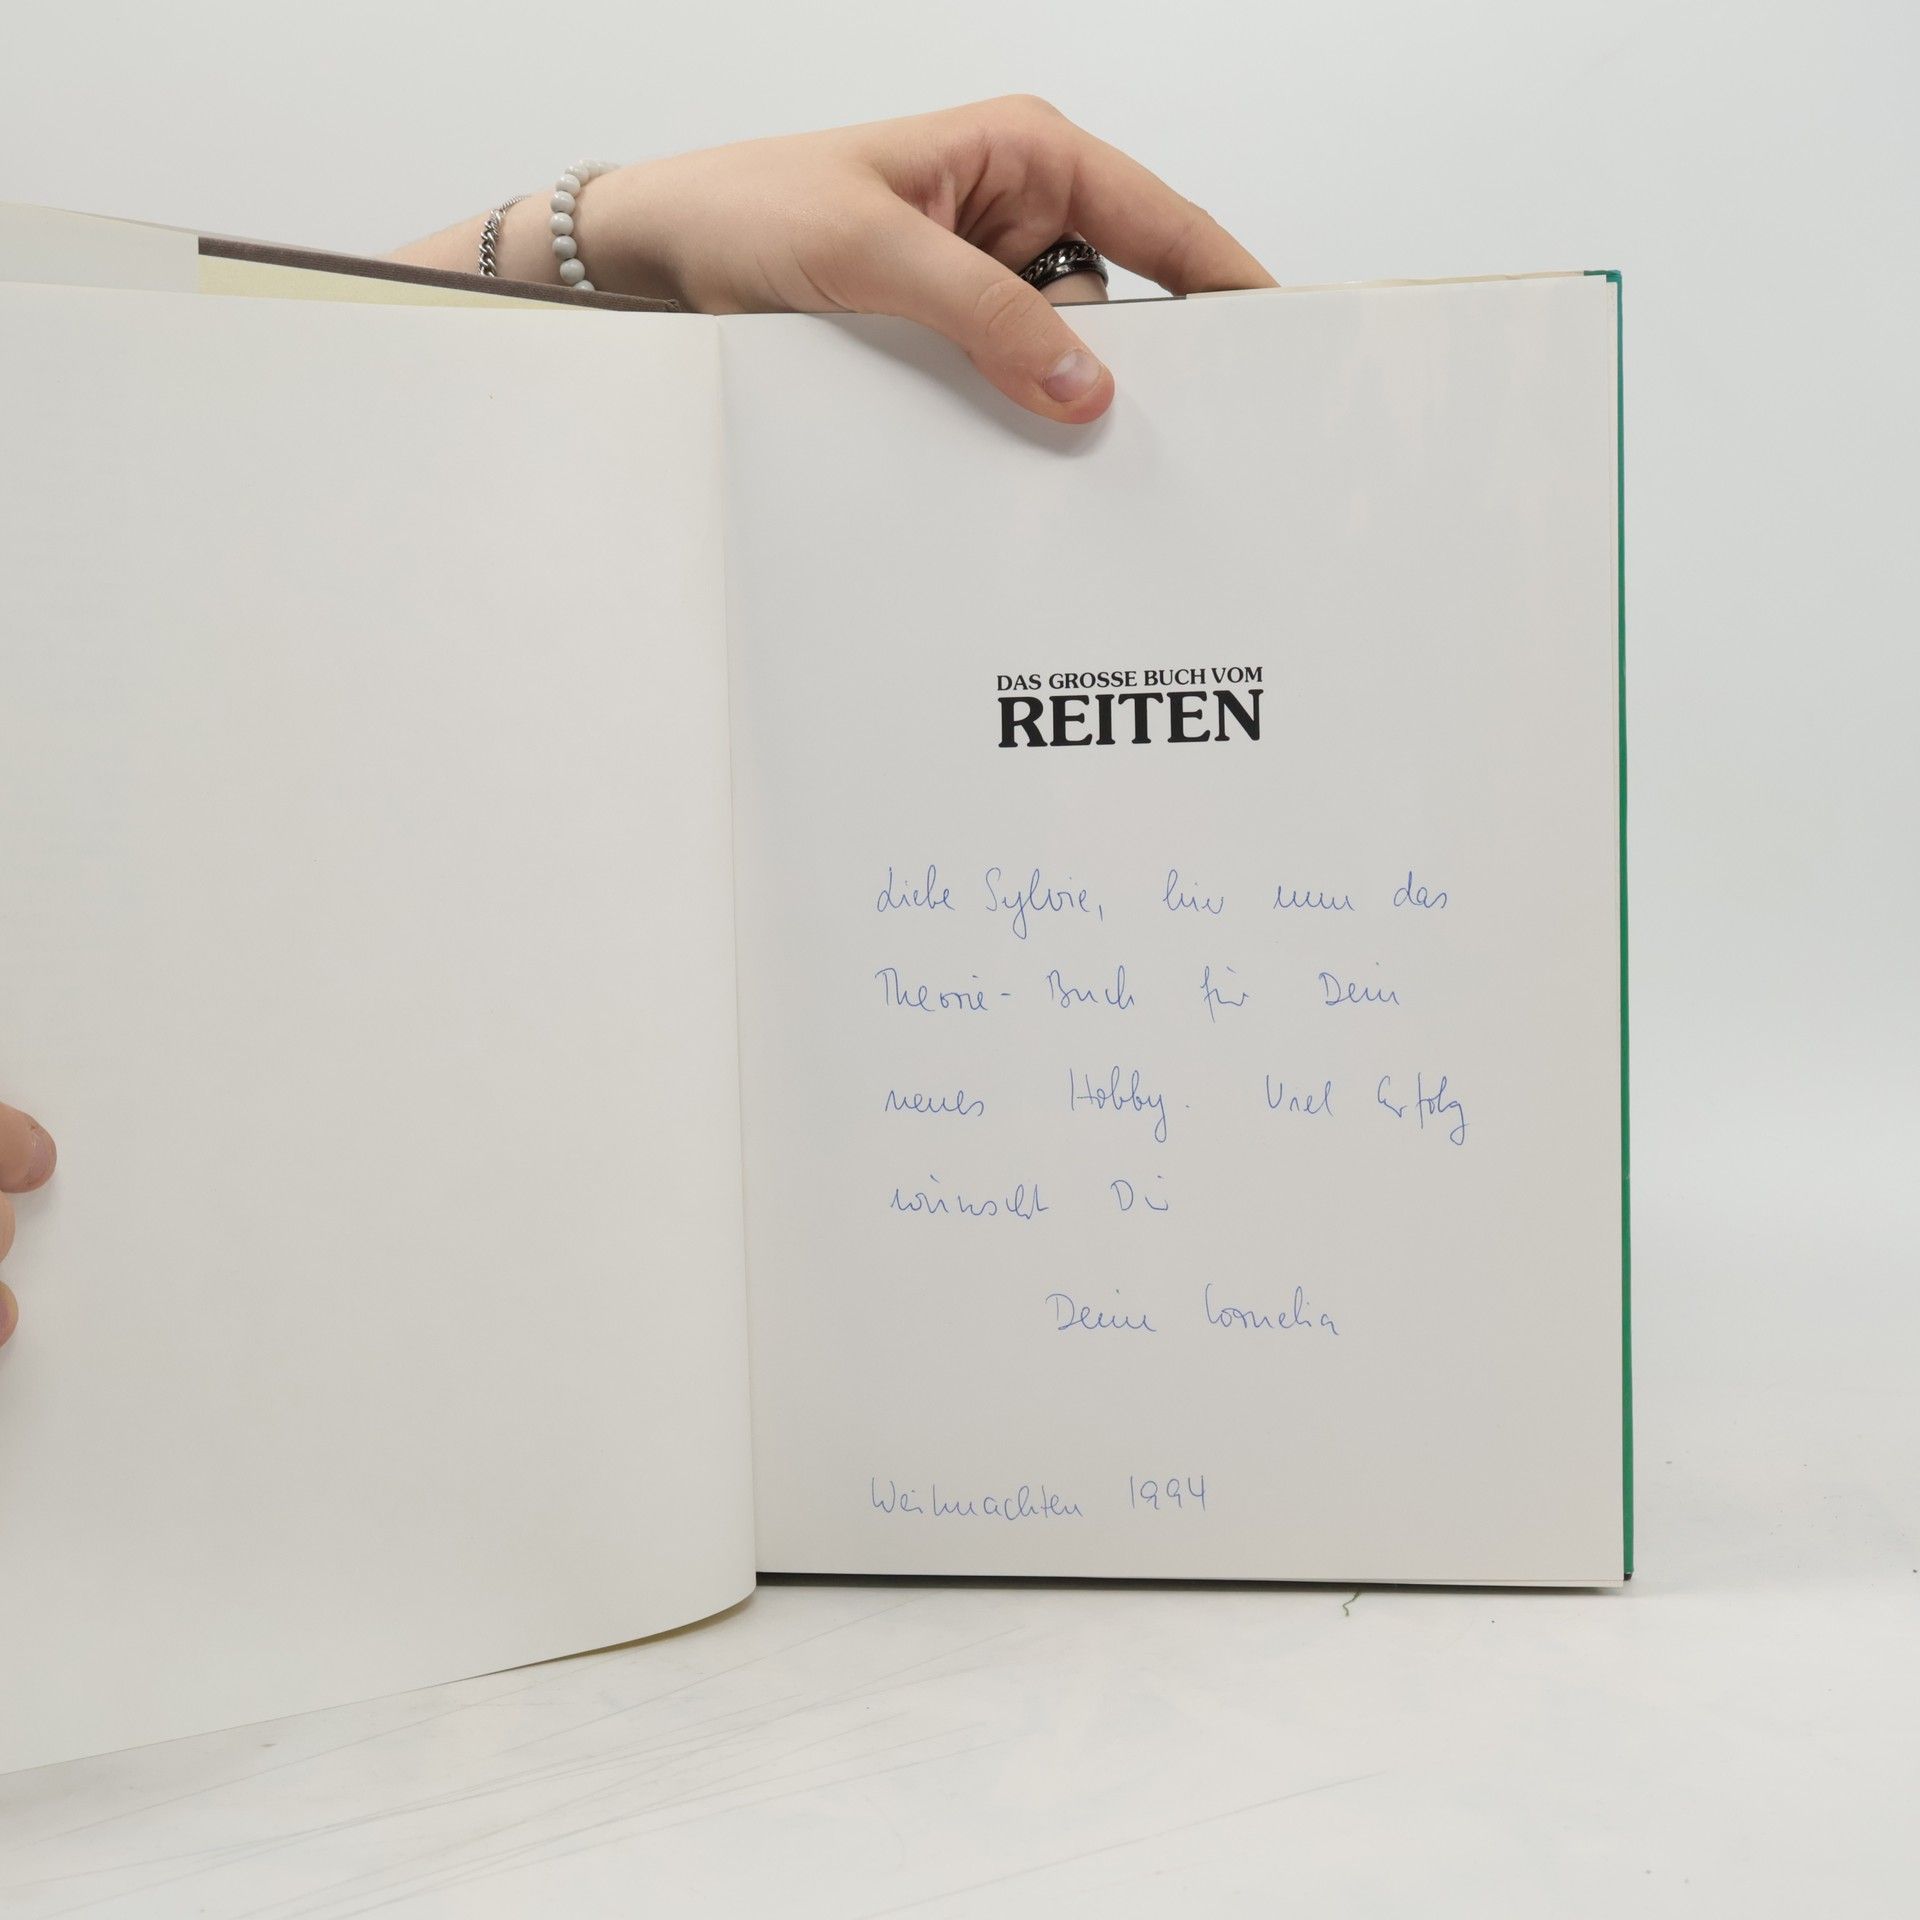 DAS GROSSE BUCH VOM
REITEN
Liebe Sylvie, hier nun das
Theorie-Buch für Dein
neues Hobby. Viel Erfolg
wünscht Dir
Deine Cornelia
Weihnachten 1994